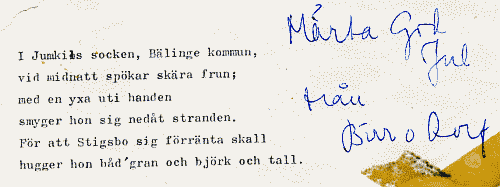 I Jumkils socken, Bälinge kommun,
vid midnatt spökar skära frun;
med en yxa uti handen
smyger hon sig nedåt stranden.
För att Stigsbo sig förränta skall
hugger hon båd'gran och björk och tall.
Märta God
Jul
från
Birr o Rolf